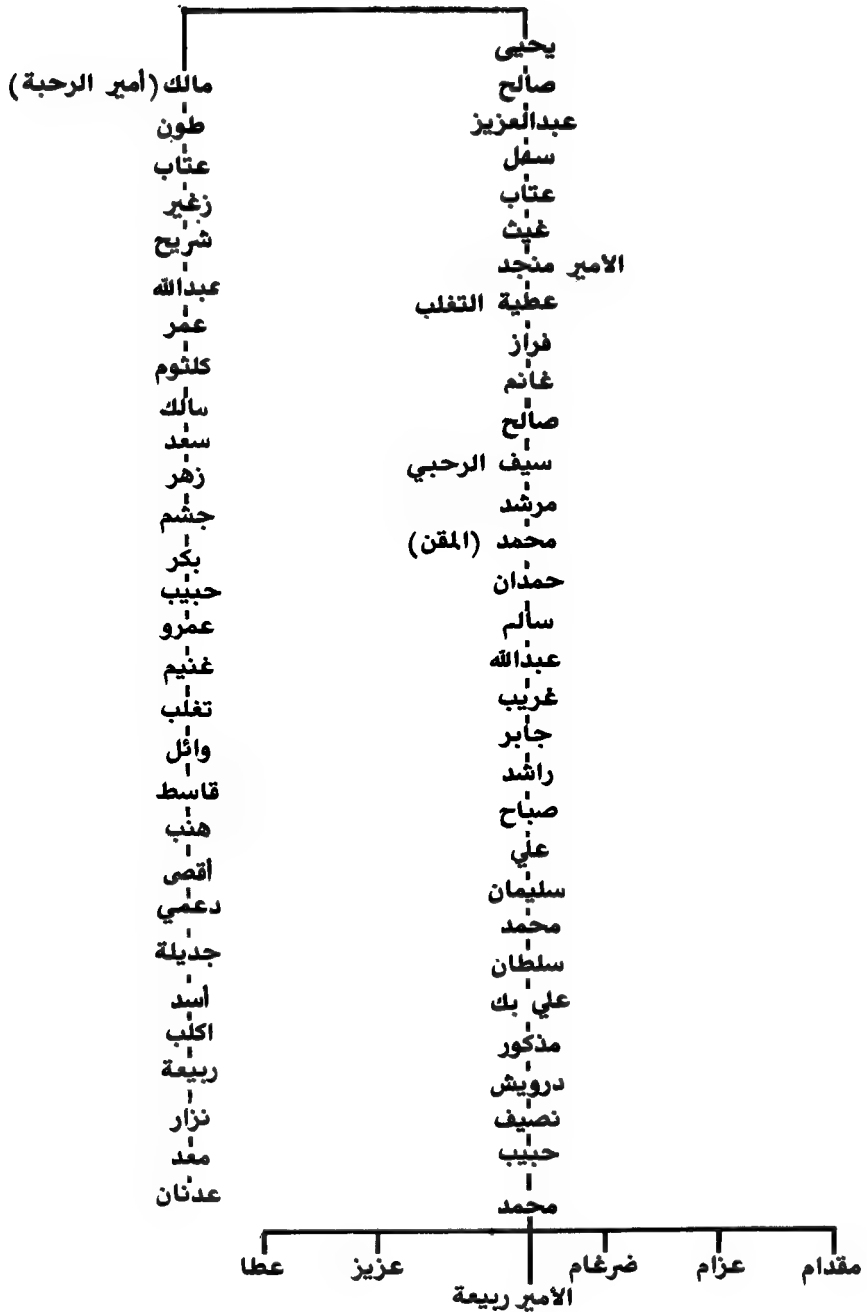 يحيى
صالح
عبدالعزيز
سهل
عتاب
غيث
الامير منجد
عطية التغلب
فراز
غانم
صالح
سيف الرحبي
مرشد
محمد (المقن)
حمدان
سالم
عبدالله
غريب
جابر
راشد
صباح
علي
سليمان
محمد
سلطان
علي بك
مذكور
درويش
نصيف
حبيب
محمد
مالك (أمير الرحبة)
طون
عتاب
زغير
شريح
عبدالله
عمر
كلثوم
مالك
سعد
زهر
جشم
بكر
حبيب
عمرو
غنيم
تغلب
وائل
قاسط
هنب
أقصى
دعمي
جديلة
أسد
اكلب
ربيعة
نزار
معد
عدنان
مقدام عزام ضرغام عزيز عطا
الأمير ربيعة